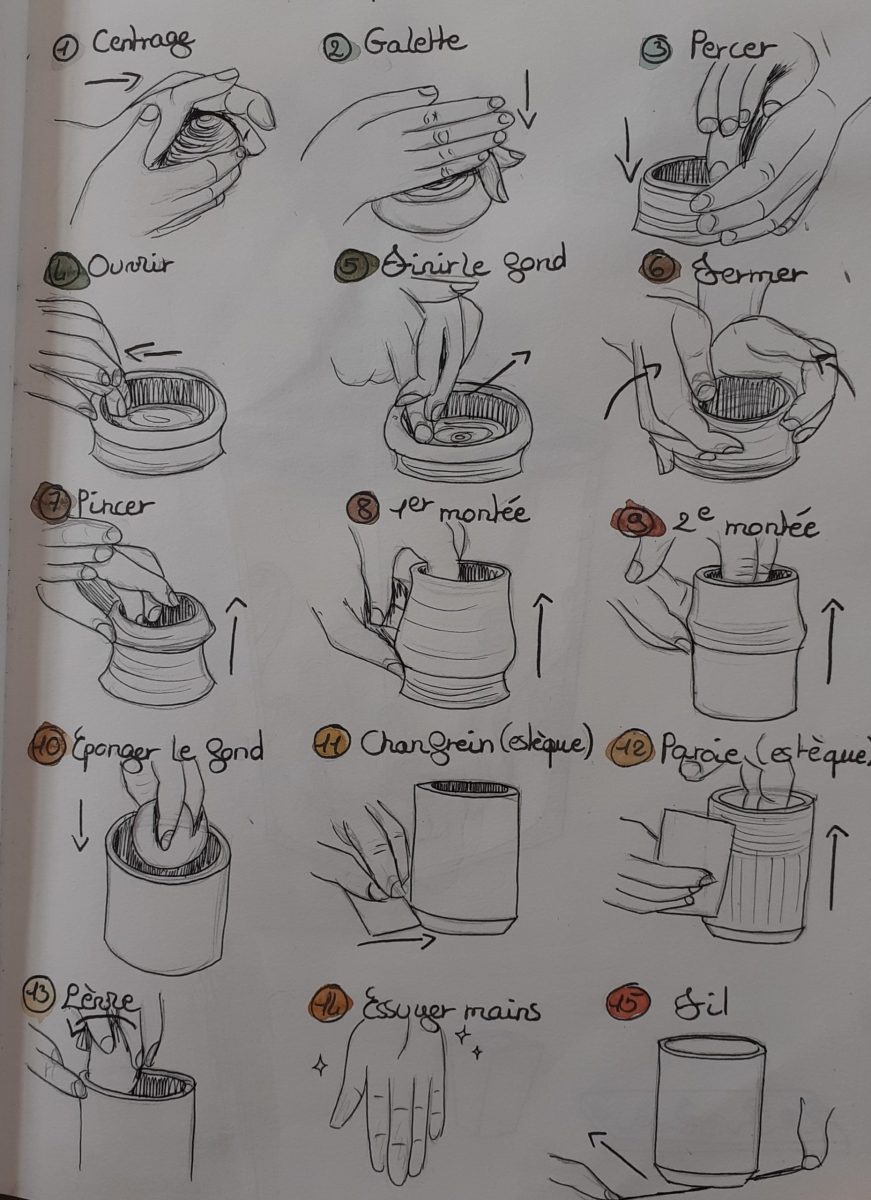 1 Centrage
2 Galette
3 Percer
4 Ouvrir
5 Finir le fond
6 Fermer
7 Pincer
8 1er montée
9 2e montée
10 Eponger le fond
11 Chanfrein (estèque)
12 Paroie (estèque)
13 Lèvre
14 Essuyer mains
15 Fil